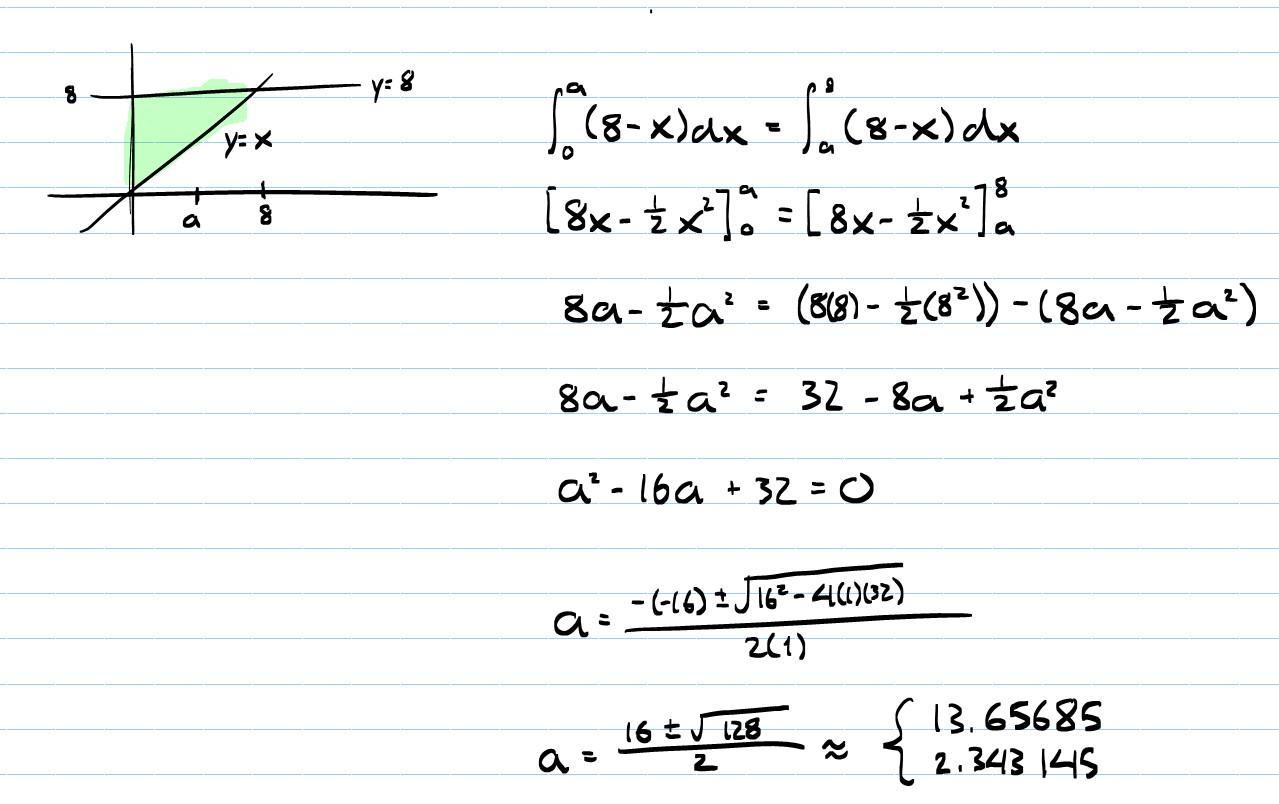 8 y=8
y=x
a 8
∫₀ᵃ (8-x)dx = ∫ₐ⁸ (8-x)dx
[8x - ½x²]₀ᵃ = [8x - ½x²]ₐ⁸
8a - ½a² = (8(8) - ½(8²)) - (8a - ½a²)
8a - ½a² = 32 - 8a + ½a²
a² - 16a + 32 = 0
a = (-(-16) ± √(16² - 4(1)(32))) / 2(1)
a = (16 ± √128) / 2 ≈ { 13.65685
2.343145